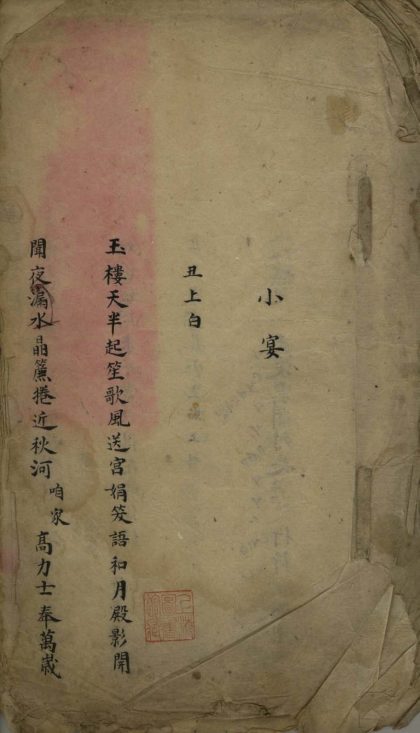 小宴
丑上白
玉樓天半起笙歌風送宮娟笑語和月殿影開
聞夜漏水晶簾捲近秋河咱家高力士奉萬歲